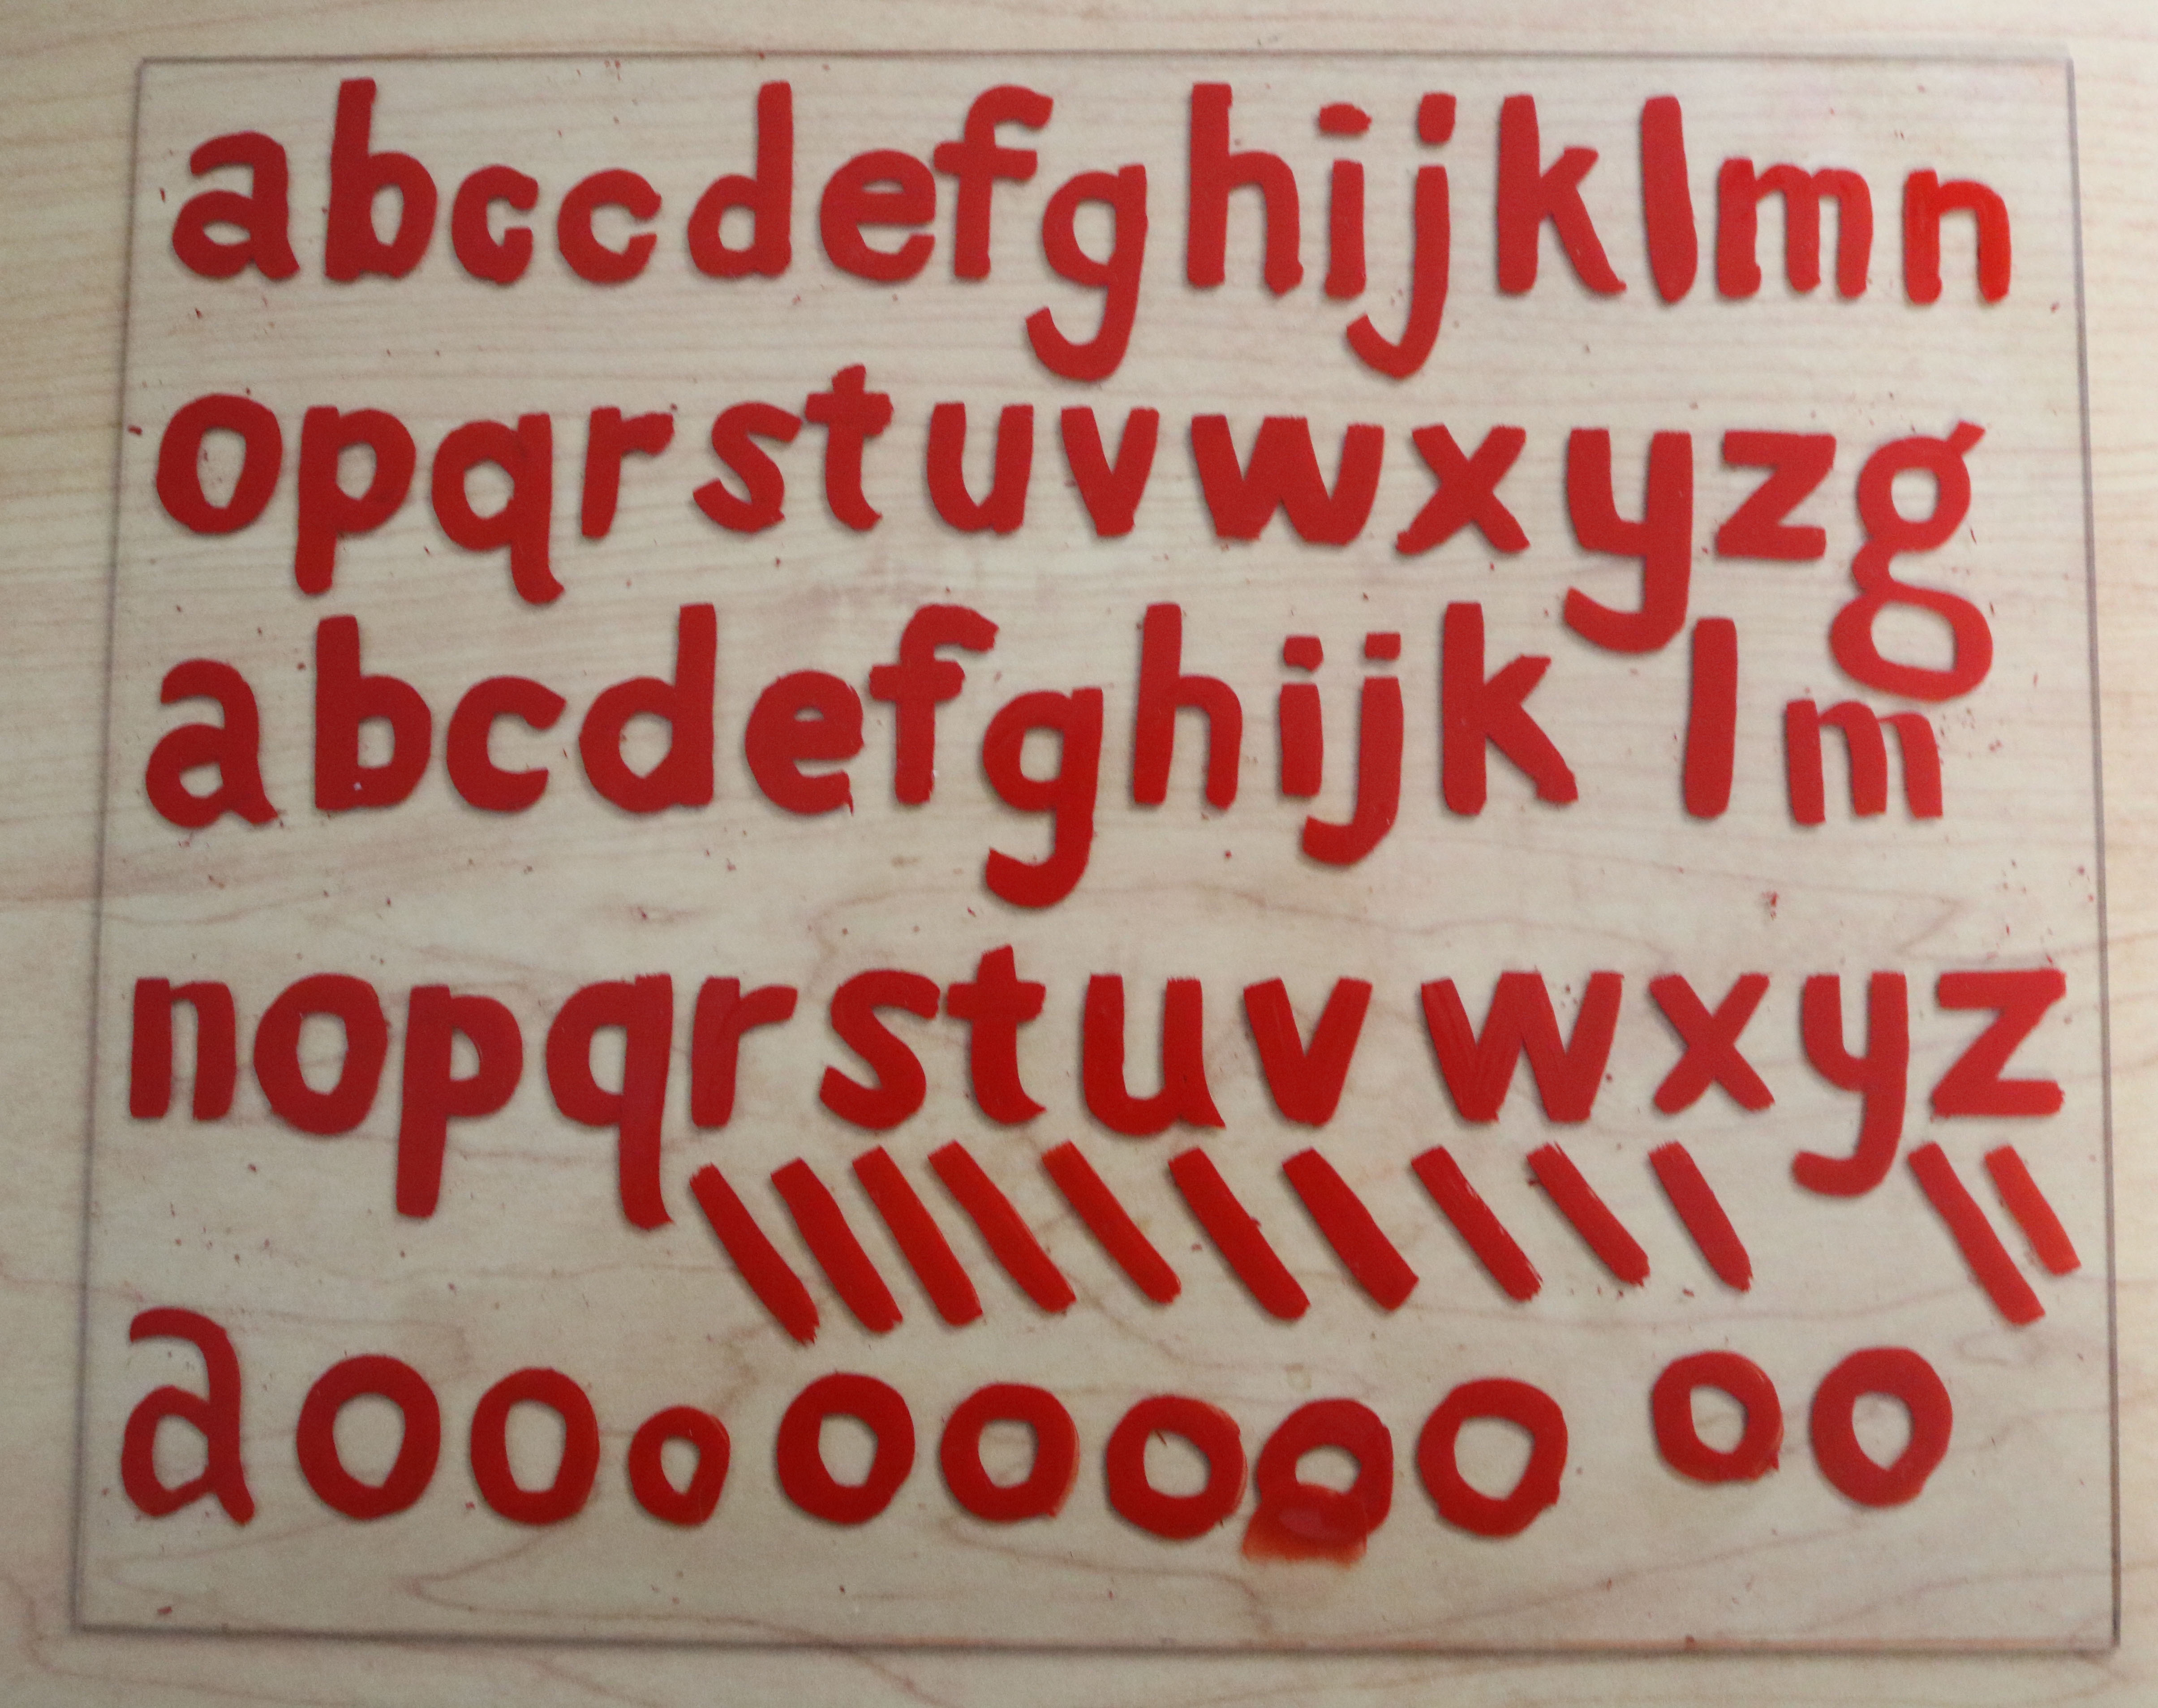 abccdefghijklmn
opqrstuvwxyzg
abcdefghijklm
nopqrstuvwxyz
\\\\\\\\\\\\
aoooooooooo